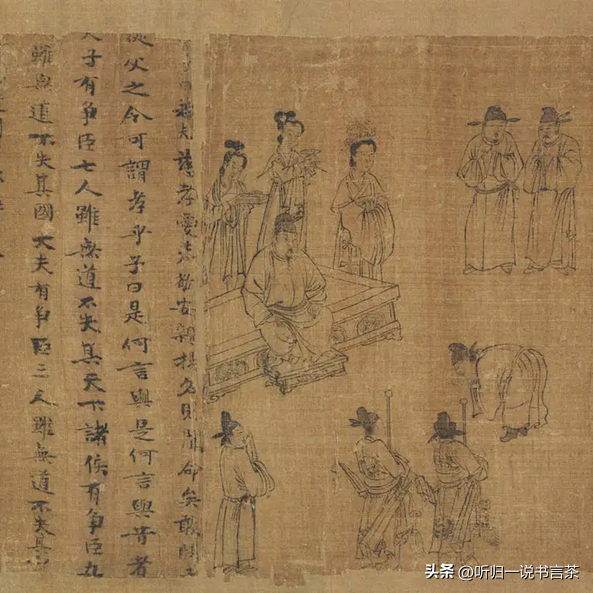 夫慈孝愛恭敬安親揚名則聞命矣敢問
從父之令可謂孝乎子曰是何言與是何言與昔者
天子有争臣七人雖無道不失其天下諸侯有争臣五
雖無道不失其國大夫有争臣三人雖無道不失其
头条 @听归一说书言茶